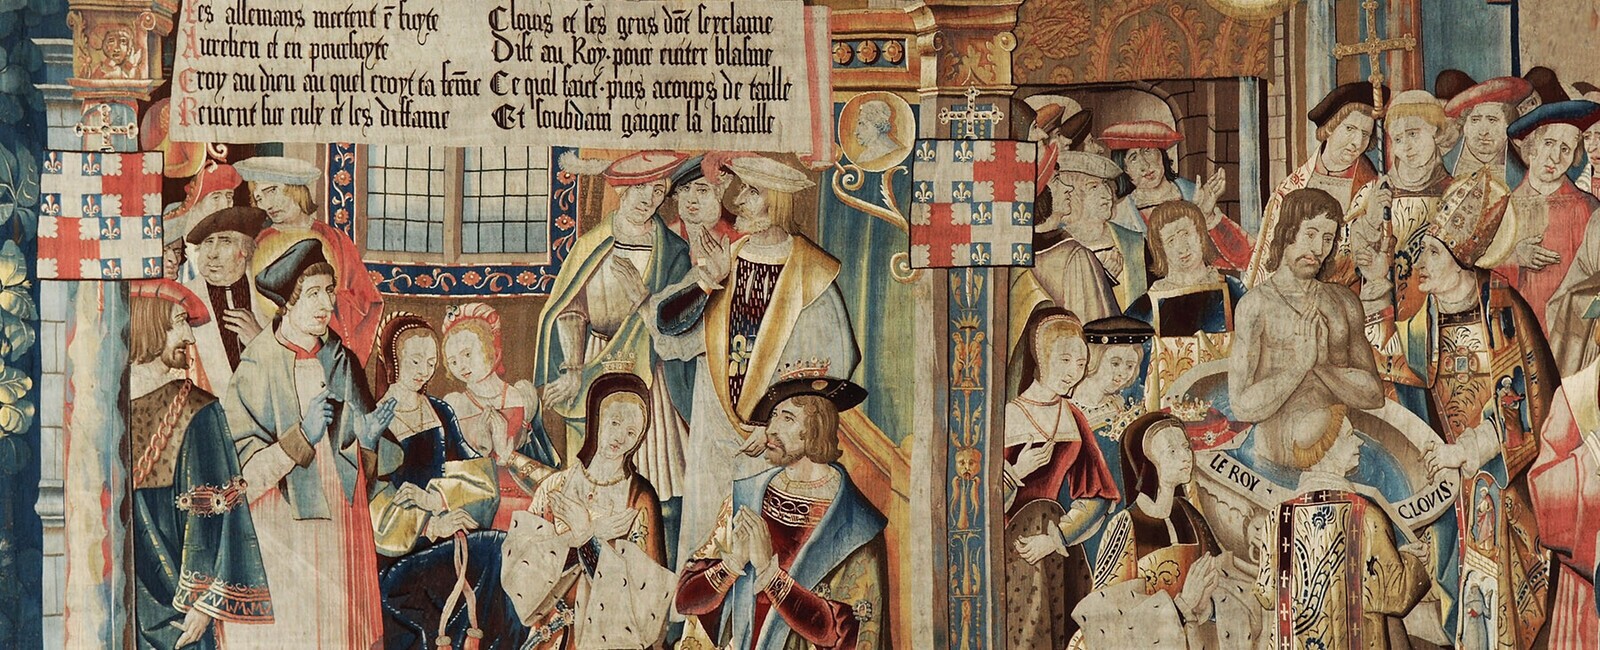 Les allemans mectent ē fuyte
Aurelien et en poursuyte
Croy au dieu au quel croyt ta fēme
Revient sur eulx et les diffame
Clouis et ses gens dōt sexclame
Dist au Roy·pour euiter blasme
Ce quil faict·puis acoups de taille
Et soubdain gaigne la bataille
LE ROY·
CLOVIS·